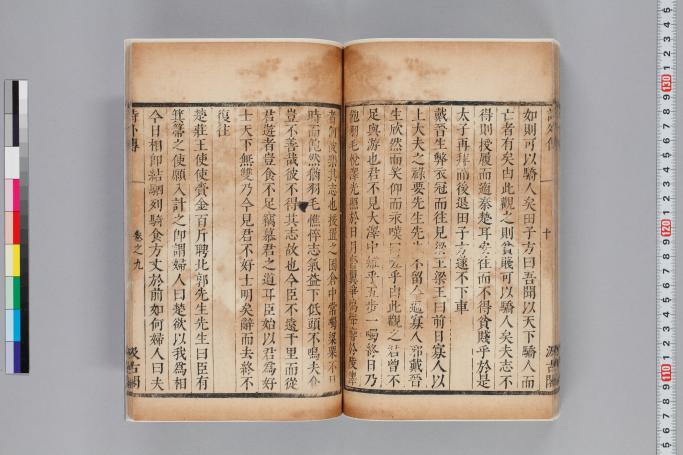 如則可以驕人矣田子方曰吾聞以天下驕人而
亡者有矣由此觀之則貧賤可以驕人矣夫志不
得則授履而適秦楚耳安往而不得貧賤乎於是
太子再拜而後退田子方遂不下車
戴晉生弊衣冠而往見梁王梁王曰前日寡人以
上大夫之祿要先生先生不留今過寡人邪戴晉
生欣然而笑仰而永嘆曰嗟乎由此觀之君曾不
足與游也君不見大澤中雉乎五步一噣終日乃
飽羽毛悅澤光照於日月
時而飽然猶羽毛憔悴志氣益下低頭不鳴夫食
豈不善哉彼不得其志故也今臣不遠千里而從
君遊者豈食不足竊慕君之道耳臣始以君為好
士天下無雙乃今見君不好士明矣辭而去終不
復往
楚莊王使使賚金百斤聘北郭先生先生曰臣有
箕箒之使願入計之卽謂婦人曰楚欲以我為相
今日相卽結駟列騎食方丈於前如何婦人曰夫
詩外傳
卷之九
汲古閣
十